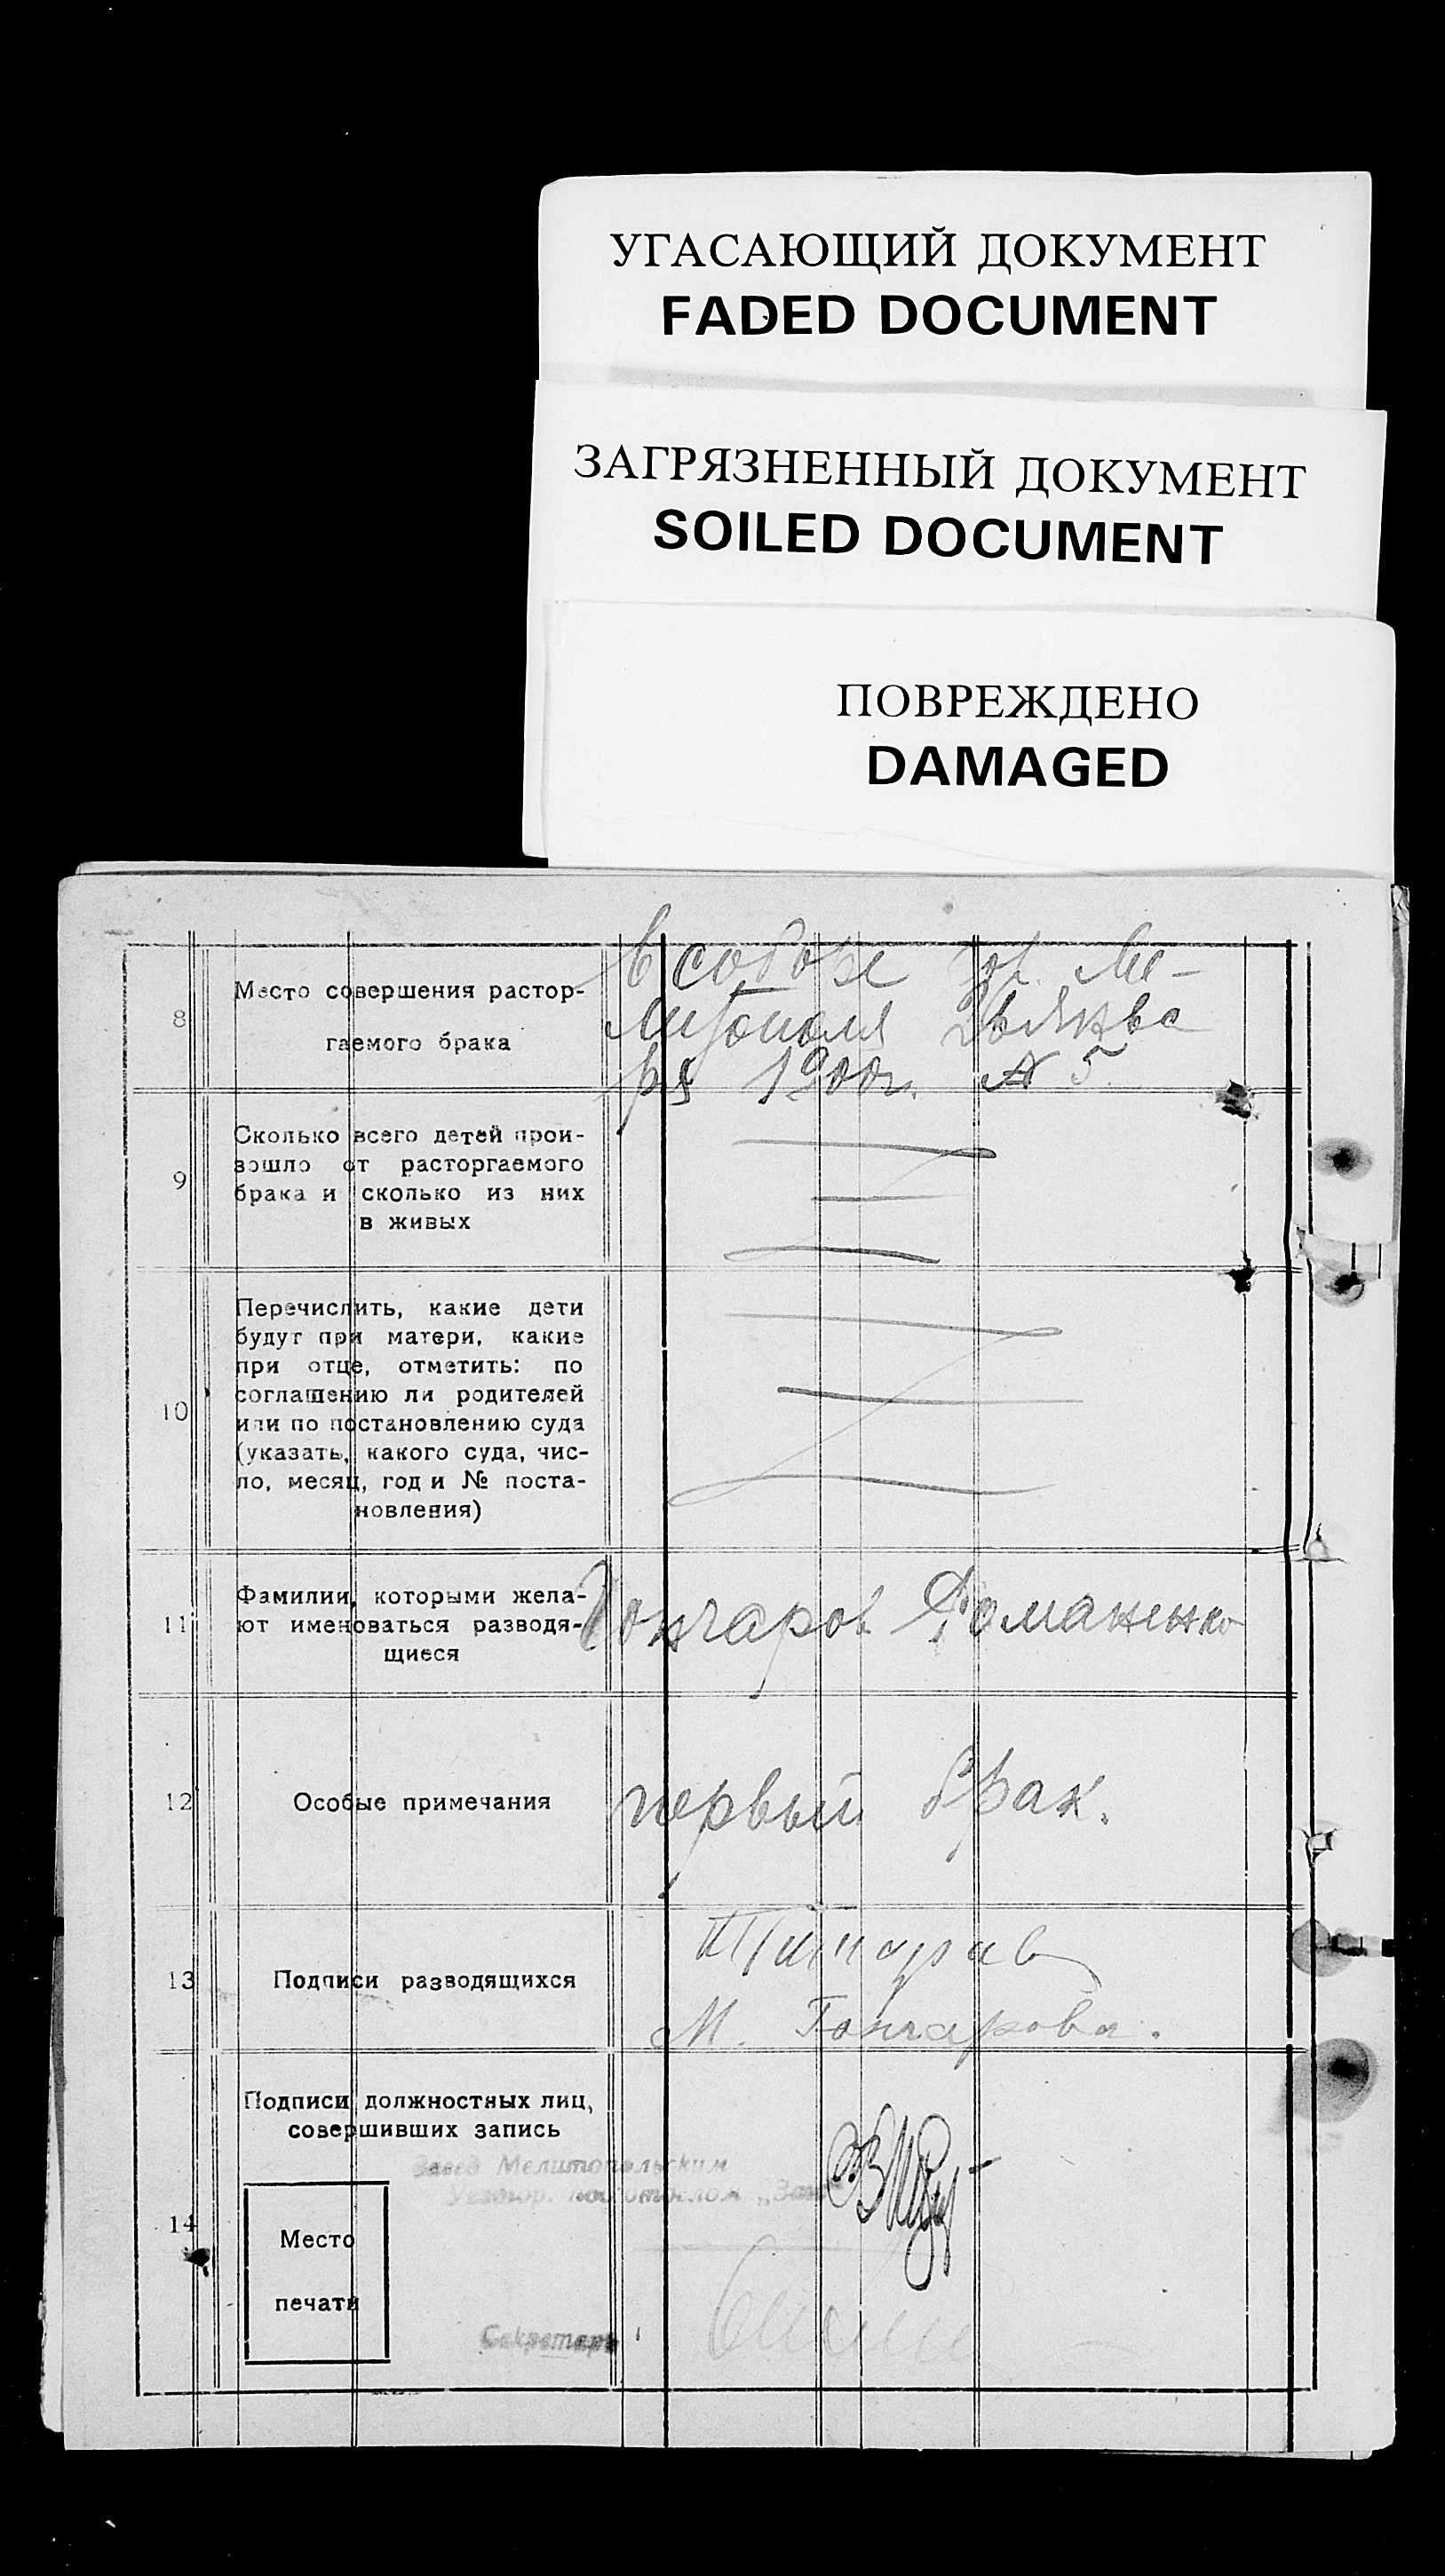 УГАСАЮЩИЙ ДОКУМЕНТ
FADED DOCUMENT
ЗАГРЯЗНЕННЫЙ ДОКУМЕНТ
SOILED DOCUMENT
ПОВРЕЖДЕНО
DAMAGED
8
Место совершения растор-
гаемого брака
в соборе гор. Ме-
литополя
ря 1900г. № 5
9
Сколько всего детей прои-
зошло от расторгаемого
брака и сколько из них
в живых
10
Перечислить, какие дети
будут при матери, какие
при отце, отметить: по
соглашению ли родителей
или по постановлению суда
(указать, какого суда, чис-
ло, месяц, год и № поста-
новления)
11
Фамилии, которыми жела-
ют именоваться разводя-
щиеся
Гончаров Романенко
12
Особые примечания
первый брак.
13
Подписи разводящихся
М. Гончарова.
14
Подписи должностных лиц,
совершивших запись
Завед Мелитопольским
Место
печати
Секретарь